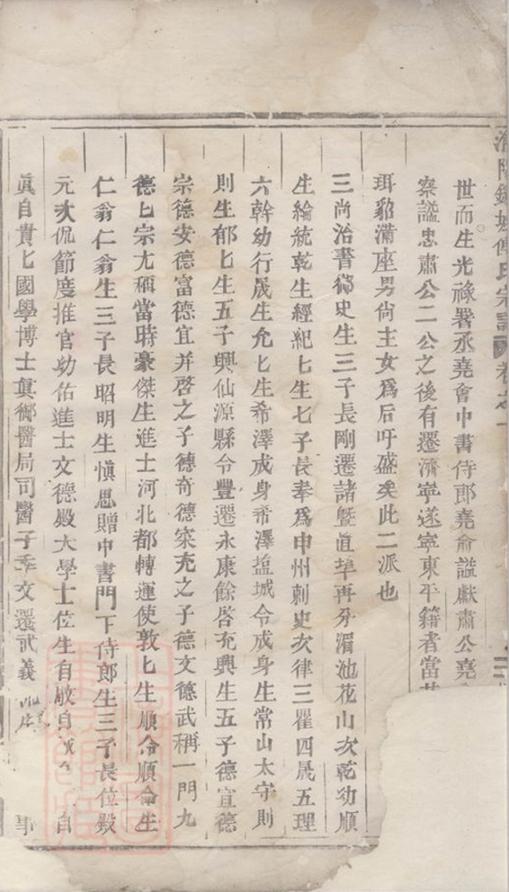 傅氏宗譜
世而生光祿署丞堯會中書侍郎堯俞謚獻肅公堯
察謚忠肅公二公之後有遷濟寧遂寧東平籍者當
珥貂滿座男尚主女爲后吁盛矣此二派也
三尚治書御史生三子長剛遷諸暨直埠再分湄池花山次乾幼順
生綸統乾生經紀匕生七子長奉爲申州刺史次律三瞿四晟五理
六幹幼行晟生允匕生希澤成身希澤塩城令成身生常山太守則
則生郁匕生五子興仙源縣令豐遷永康餘啓充興生五子德宣德
宗德安德富德宜并啓之子德奇德寀充之子德文德武稱一門九
德匕宗尤稱當時豪傑生進士河北都轉運使敦匕生順侖順侖生
仁翁仁翁生三子長昭明生愼思贈中書門下侍郎生三子長位毅
元次侃節度推官幼佑進士文德殿大學士位生自 自 自
眞自貴匕國學博士眞鄉醫局司醫子季文遷武義 事